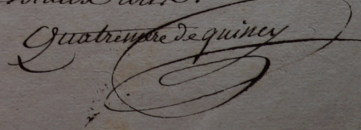 Quatremere de quincy